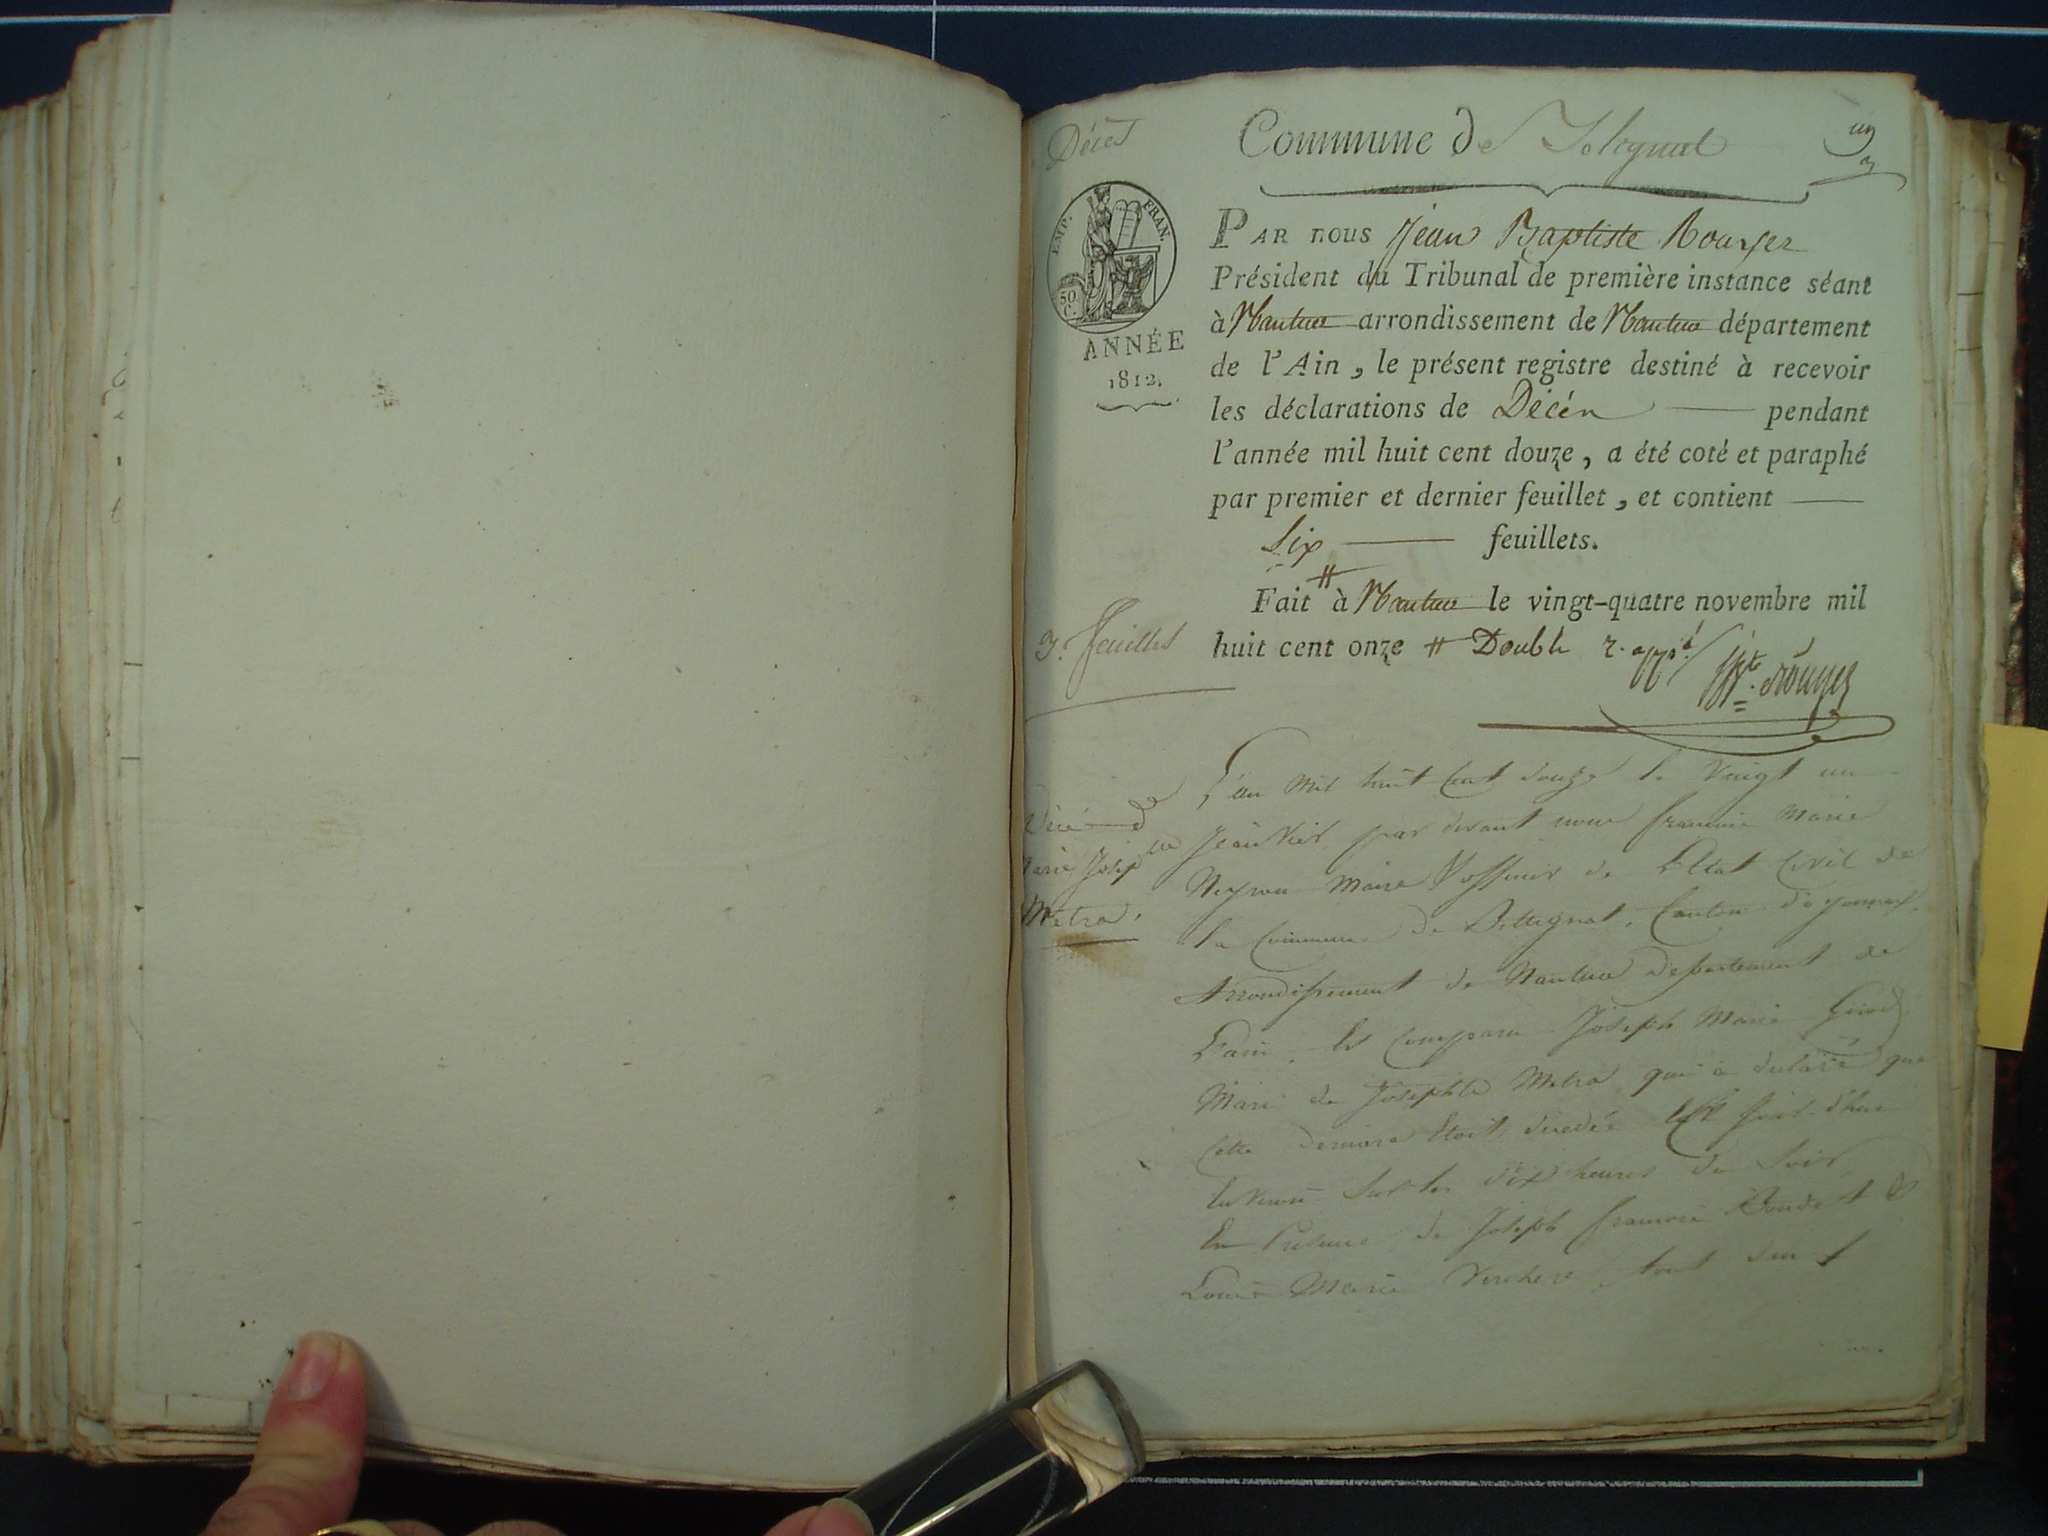 Décès
Commune de
un
EMP. FRAN.
50 C.
ANNÉE
1812.
PAR nous Jean Baptiste Rouyer
Président du Tribunal de première instance séant
à Nantua arrondissement de Nantua département
de l'Ain, le présent registre destiné à recevoir
les déclarations de Décès pendant
l'année mil huit cent douze, a été coté et paraphé
par premier et dernier feuillet, et contient
Six feuillets.
Fait # à Nantua le vingt-quatre novembre mil
huit cent onze # Double
feuilles
Rouyer
Marie Joseph
Metra.
L'an mil huit Cent douze le Vingt un
Janvier par devant nous françois Marie
Neyron Maire & officier de L'Etat Civil de
la Commune de Canton d'oyonnax
Arrondissement de Nantua département de
L'ain, Est Comparu Joseph Marie
Mari de Josephte Metra qui a déclaré que
Cette derniere Etoit décédée
Environ Sur les dix heures du Soir
En Présence de Joseph françois &
Louis Marie Verchere tout deux